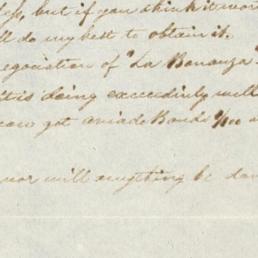 but if you think it wor
ll do my best to obtain it.
egociation of "La Bonanza"
it is doing exceedinly well
can get aviado Bonds
nor will anything be don